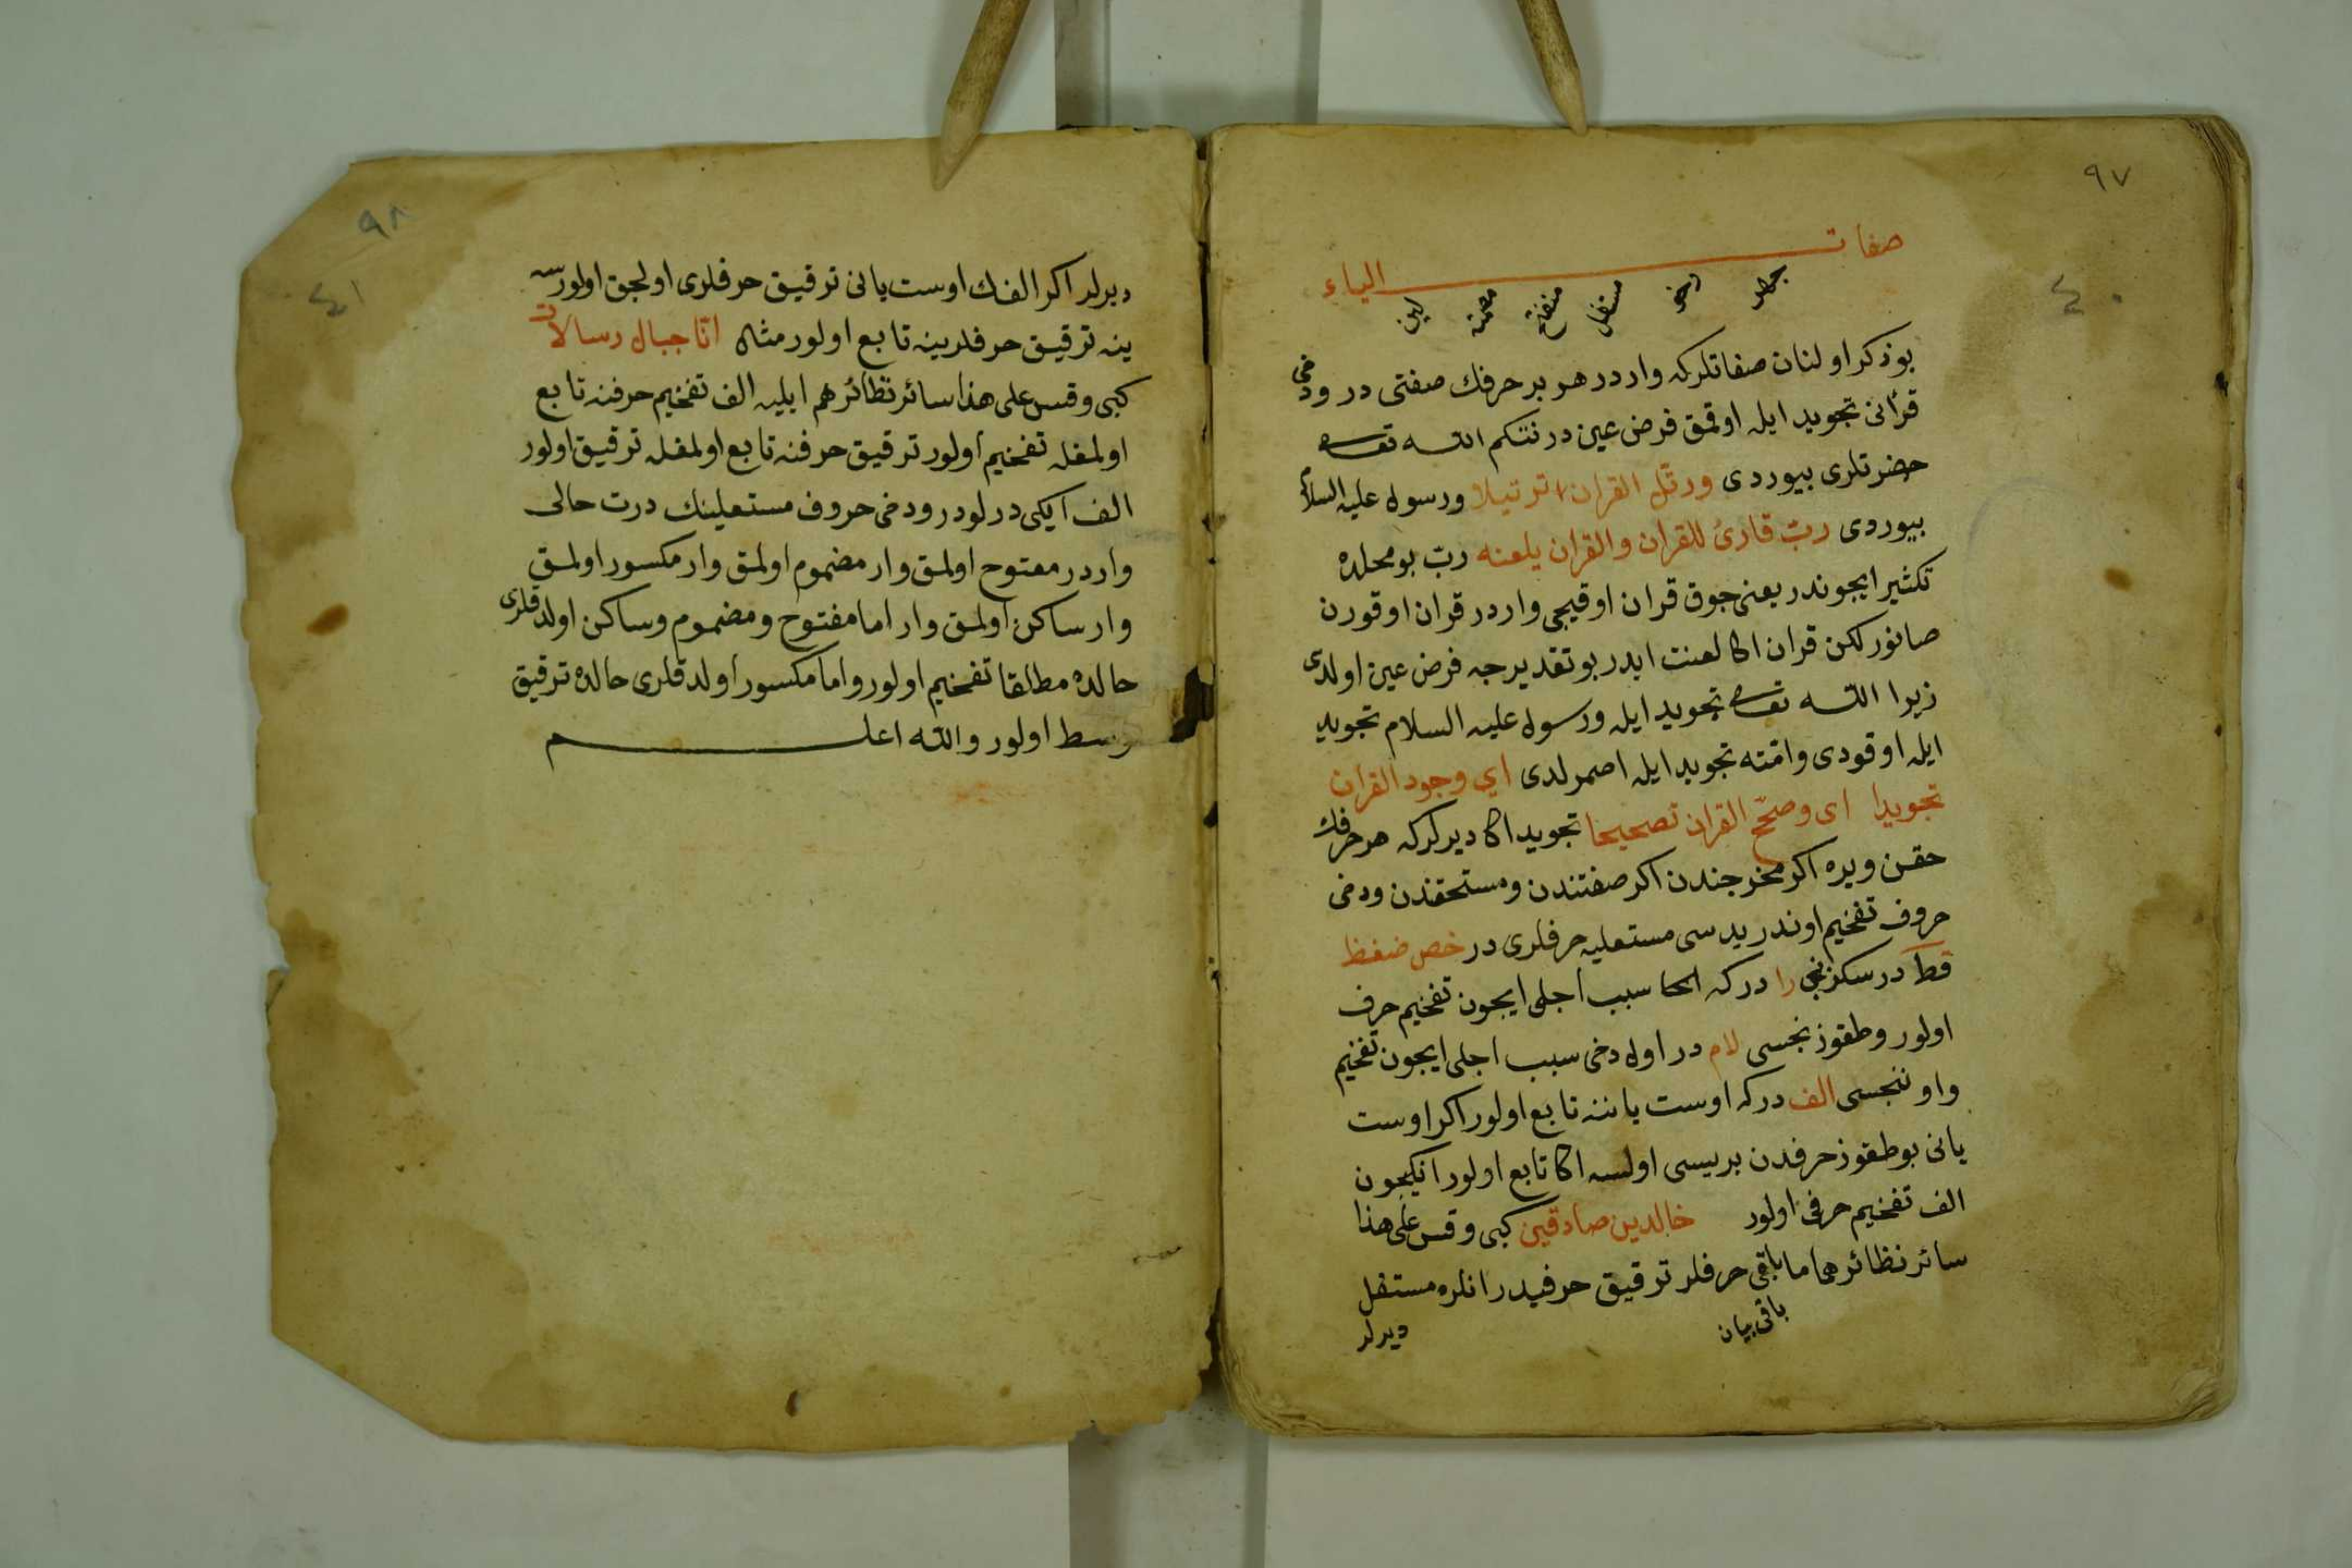 ٩٧
٤٠
صفات الياء
جهر رخو مستفل منفتح مصمته لين
بو ذكر اولنان صفاتلر كه واردر هر بر حرفك صفتى در ودخى
قرآنى تجويد ايله اوقمق فرض عين در نتكم الله تعالى
حضرتلرى بيوردى ورتل القران ترتيلا ورسول عليه السلام
بيوردى ربّ قارئ للقران والقران يلعنه ربّ بو محلده
تكثير ايچوندر يعنى چوق قران اوقيجى واردر قران اوقورن
صانور لكن قران اكا لعنت ايدر بو تقديرجه فرض عين اولدى
زيرا الله تعالى تجويد ايله ورسول عليه السلام تجويد
ايله اوقودى وامته تجويد ايله اصمرلدى اي وجود القران
تجويدا اى وصحّح القران تصحيحا تجويد اكا ديرلركه هر حرفك
حقن ويره اكر مخرجندن اكر صفتندن ومستحقندن ودخى
حروف تفخيم اوندر يدسى مستعليه حرفلرى در خص ضغط
قظ در سكزنجى را در كه اكا سبب اجلى ايچون تفخيم حرف
اولور وطقوزنجسى لام در اول دخى سبب اجلى ايچون تفخيم
واوننجسى الف در كه اوست ياننه تابع اولور اكر اوست
يانى بو طقوز حرفدن بريسى اولسه اكا تابع اولور انكچون
الف تفخيم حرفى اولور خالدين صادقين كبى وقس على هذا
سائر نظائرهما ما باقى حرفلر ترقيق حرفيدر انلره مستفل
باقى بيان
ديرلر
٩٨
٤١
ديرلر اكر الفك اوست يانى ترقيق حرفلرى اولجق اولورسه
ينه ترقيق حرفلرينه تابع اولور مثال انّا جبال رسالات
كبى وقس على هذا سائر نظائرهم ايليه الف تفخيم حرفنه تابع
اولمغله تفخيم اولور ترقيق حرفنه تابع اولمغله ترقيق اولور
الف ايكى درلودر ودخى حروف مستعلينك درت حالى
واردر مفتوح اولمق وار مضموم اولمق وار مكسور اولمق
وار ساكن اولمق وار اما مفتوح ومضموم وساكن اولدقلرى
حالده مطلقا تفخيم اولور واما مكسور اولدقلرى حالده ترقيق
وسط اولور والله اعلم